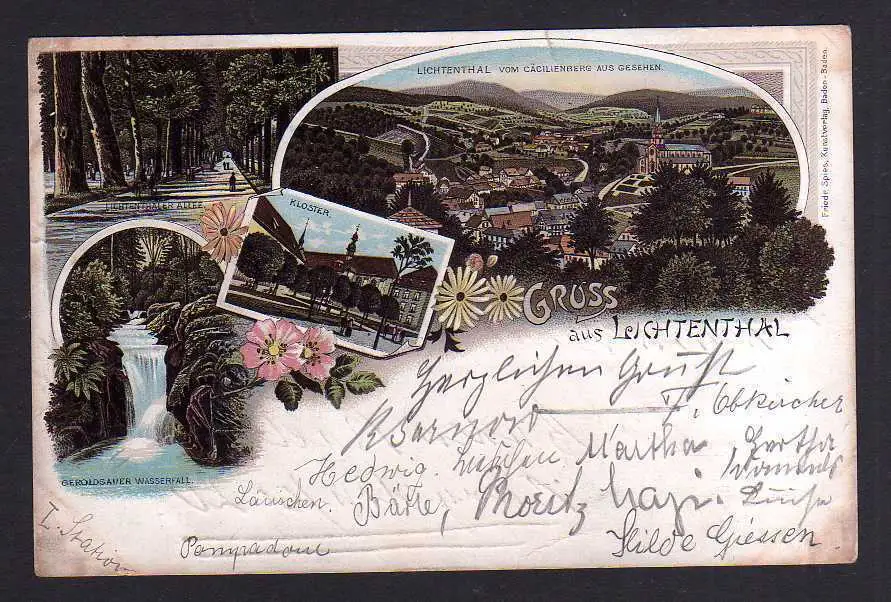 LICHTENTHAL VOM CÄCILIENBERG AUS GESEHEN.
LICHTENTHALER ALLEE
KLOSTER.
GEROLDSAUER WASSERFALL.
GRUSS
aus LICHTENTHAL
Friedr. Spies, Kunstverlag, Baden-Baden.
Herzlichen Gruß
Obkircher
Hedwig. Martha, Bertha
Läuschen. Bärle, Moritz, Luise
Hilde Giessen
Pompadour
I. Station